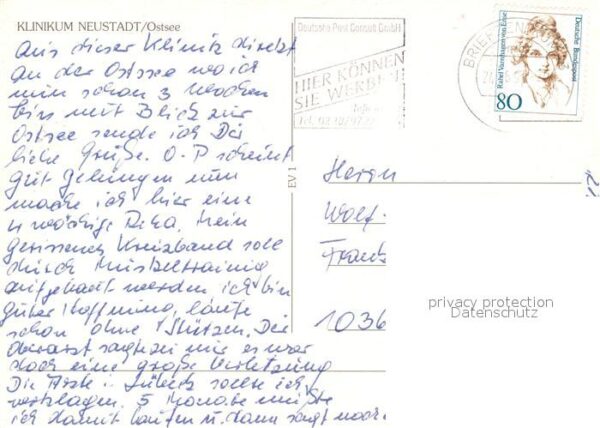 KLINIKUM NEUSTADT/Ostsee
Aus dieser Klinik direkt
an der Ostsee wo ich
nun schon 3 Wochen
bin mit Blick zur
Ostsee sende ich Dir
liebe Grüße. O-P scheint
gut gelungen nun
mache ich hier eine
4 wöchige Reha. Mein
gerissenes Kreuzband soll
durch Muskeltraining
aufgebaut werden ich bin
guter Hoffnung, laufe
schon ohne Stützen. Der
Oberarzt sagte zu mir es war
doch eine große Verletzung
Die Ärzte i. Lübeck sollte ich
verklagen. 5 Monate mußte
ich damit laufen u. dann sagt noch
EV 1
Deutsche Post Consult GmbH
HIER KÖNNEN
SIE WERBEN
Tel.
BRIEF
Rahel Varnhagen von Ense
Deutsche Bundespost
80
Herrn
Wolf-
Frank
1036
privacy protection
Datenschutz